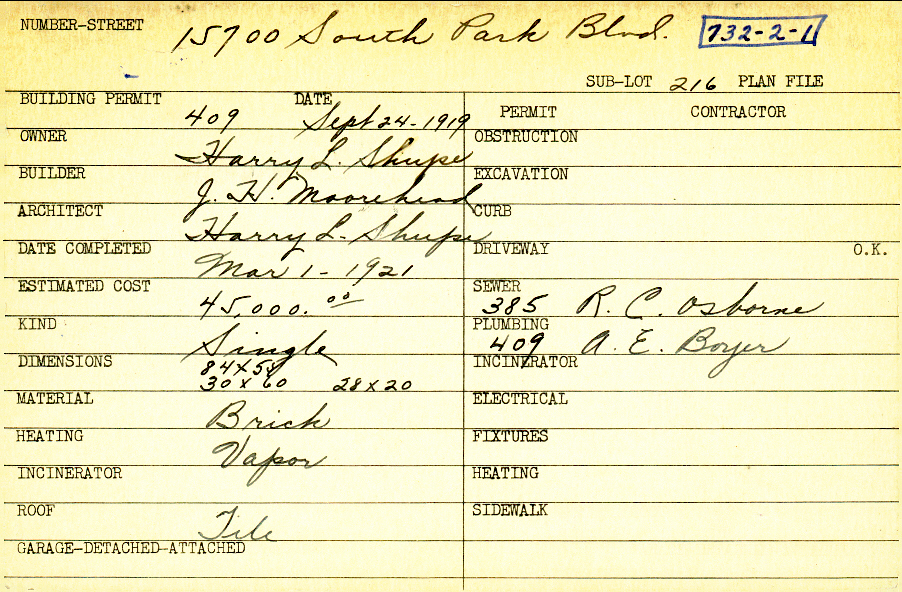 NUMBER-STREET 15700 South Park Blvd. 732-2-1
SUB-LOT 216 PLAN FILE
BUILDING PERMIT 409 DATE Sept 24-1919
PERMIT CONTRACTOR
OWNER Harry L. Shupe
OBSTRUCTION
BUILDER J. H. Moorehead
EXCAVATION
ARCHITECT Harry L. Shupe
CURB
DATE COMPLETED Mar 1-1921
DRIVEWAY O.K.
ESTIMATED COST 45,000.00
SEWER 385 R. C. Osborne
KIND Single
PLUMBING 409 A. E. Boyer
DIMENSIONS 84x58
30x60 28x20
INCINERATOR
MATERIAL Brick
ELECTRICAL
HEATING Vapor
FIXTURES
INCINERATOR
HEATING
ROOF Tile
SIDEWALK
GARAGE-DETACHED-ATTACHED